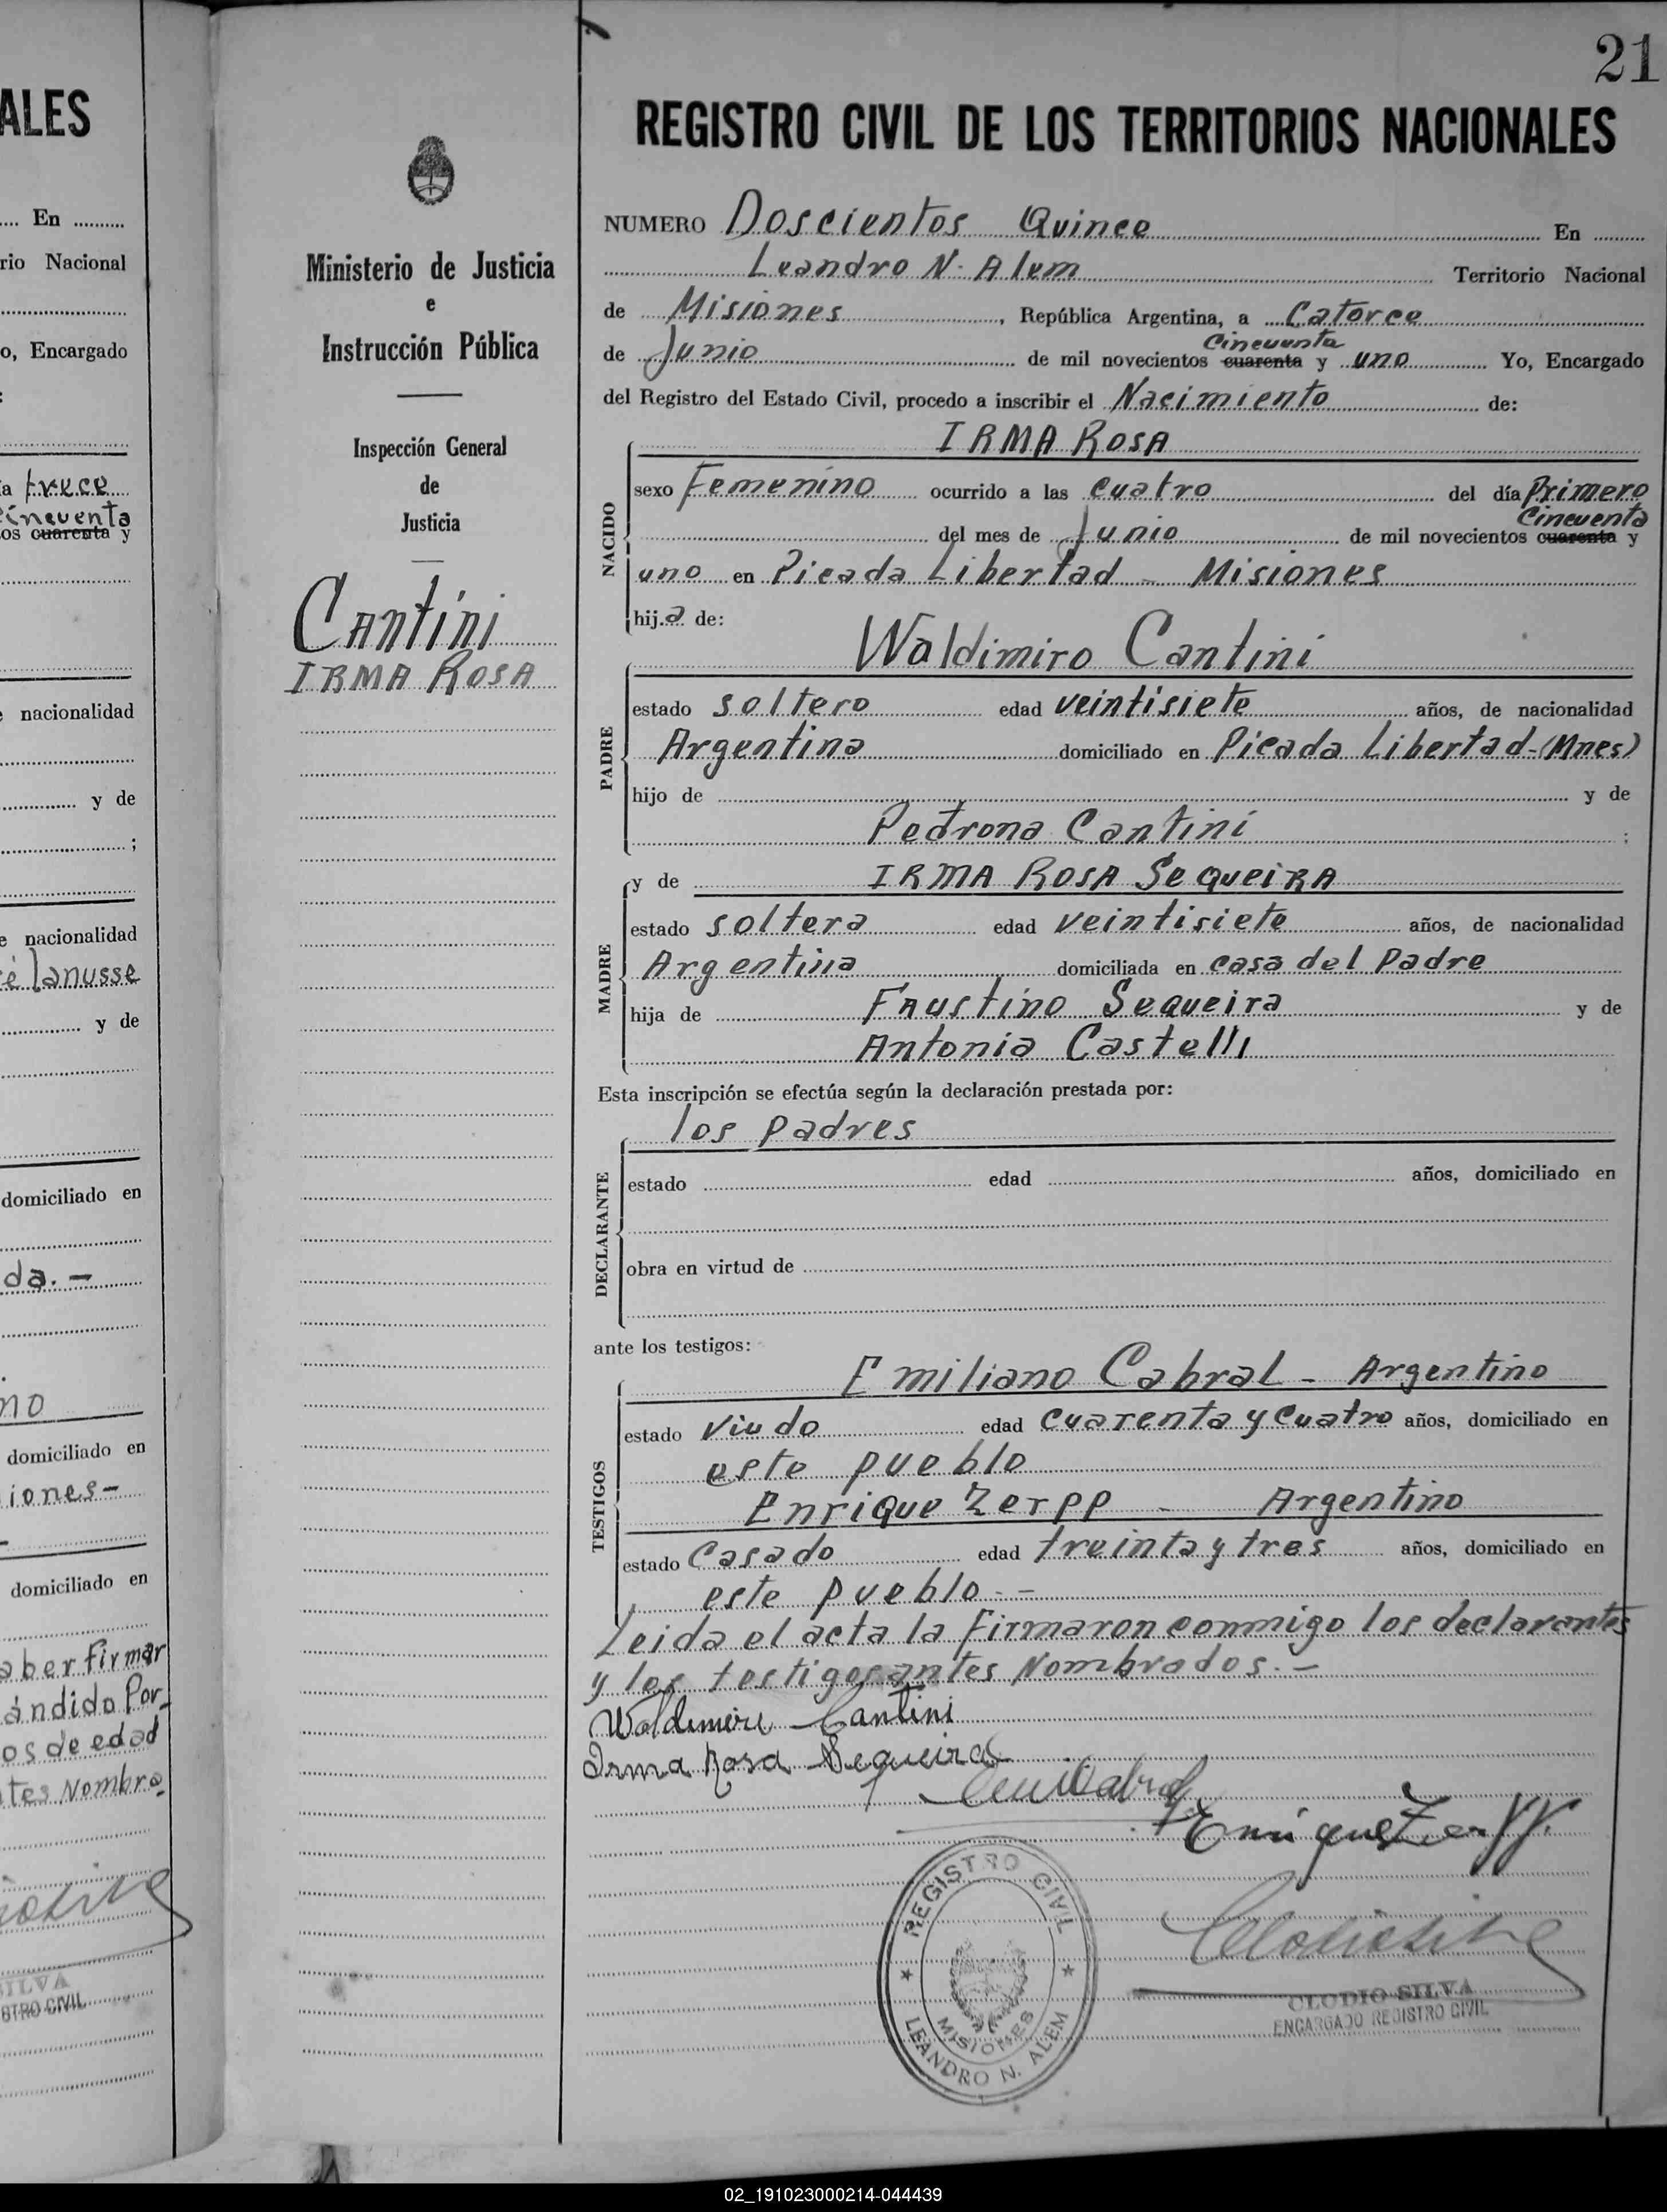 21
REGISTRO CIVIL DE LOS TERRITORIOS NACIONALES
NUMERO Doscientos Quince En
Leandro N. Alem Territorio Nacional
de Misiones, República Argentina, a Catorce
Cincuenta
de Junio de mil novecientos cuarenta y uno Yo, Encargado
del Registro del Estado Civil, procedo a inscribir el Nacimiento de:
IRMA ROSA
NACIDO
sexo Femenino ocurrido a las cuatro del día Primero
Cincuenta
del mes de Junio de mil novecientos cuarenta y
uno en Picada Libertad - Misiones
hij.a de:
Waldimiro Cantini
PADRE
estado soltero edad veintisiete años, de nacionalidad
Argentina domiciliado en Picada Libertad-(Mnes)
hijo de y de
Pedrona Cantini ;
y de IRMA ROSA SEQUEIRA
MADRE
estado soltera edad veintisiete años, de nacionalidad
Argentina domiciliada en casa del Padre
hija de Faustino Sequeira y de
Antonia Castelli
Esta inscripción se efectúa según la declaración prestada por:
los padres
DECLARANTE
estado edad años, domiciliado en
obra en virtud de
ante los testigos:
Emiliano Cabral - Argentino
TESTIGOS
estado Viudo edad cuarenta y cuatro años, domiciliado en
este pueblo
Enrique Zerpp - Argentino
estado Casado edad treinta y tres años, domiciliado en
este pueblo.-
Leida el acta la firmaron conmigo los declarantes
y los testigos antes Nombrados.-
Waldimiro Cantini
Irma Rosa Sequeira
Enrique Zerpp.
REGISTRO CIVIL
MISIONES
LEANDRO N. ALEM
CLODIO SILVA
ENCARGADO REGISTRO CIVIL
Ministerio de Justicia
e
Instrucción Pública
Inspección General
de
Justicia
Cantini
IRMA ROSA
ALES
En
rio Nacional
o, Encargado
:
a trece
Cincuenta
os cuarenta y
nacionalidad
y de
;
e nacionalidad
é lanusse
y de
domiciliado en
da.-
no
domiciliado en
iones-
domiciliado en
aber firmar
ándido Por_
os de edad
tes Nombra_
SILVA
STRO CIVIL
02_191023000214-044439